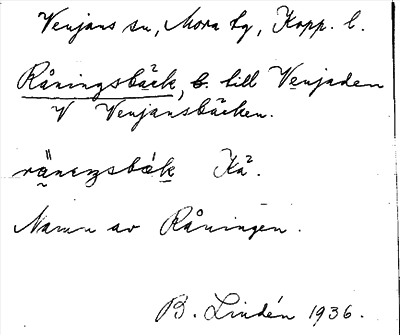 Venjans sn, Mora tg, Kopp. l.
Råningsbäck, b. till Venjaden
V Venjansbäcken.
Kä².
Namn av Råningen.
B. Lindén 1936.